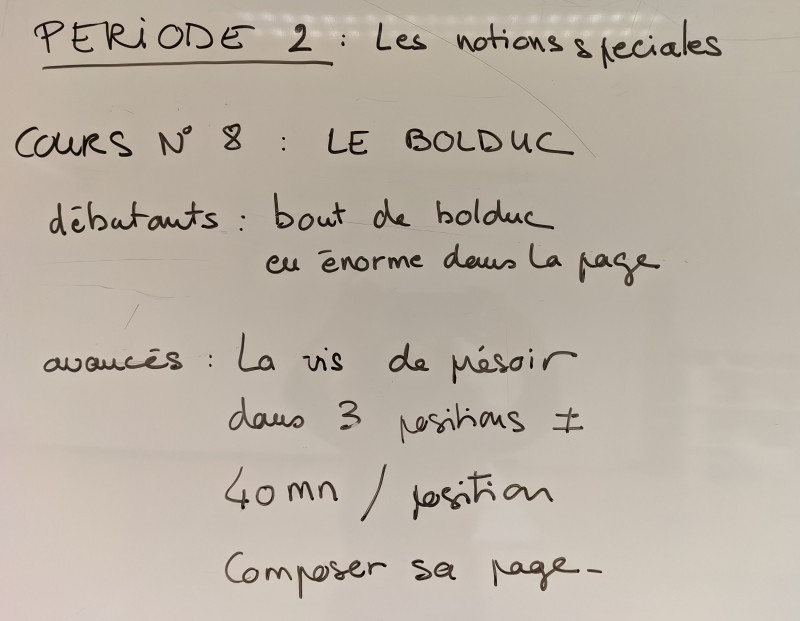 PERIODE 2 : Les notions speciales
COURS N° 8 : LE BOLDUC
débutants : bout de bolduc
en énorme dans la page
avancés : La vis de présoir
dans 3 positions ≠
40 mn / position
Composer sa page -